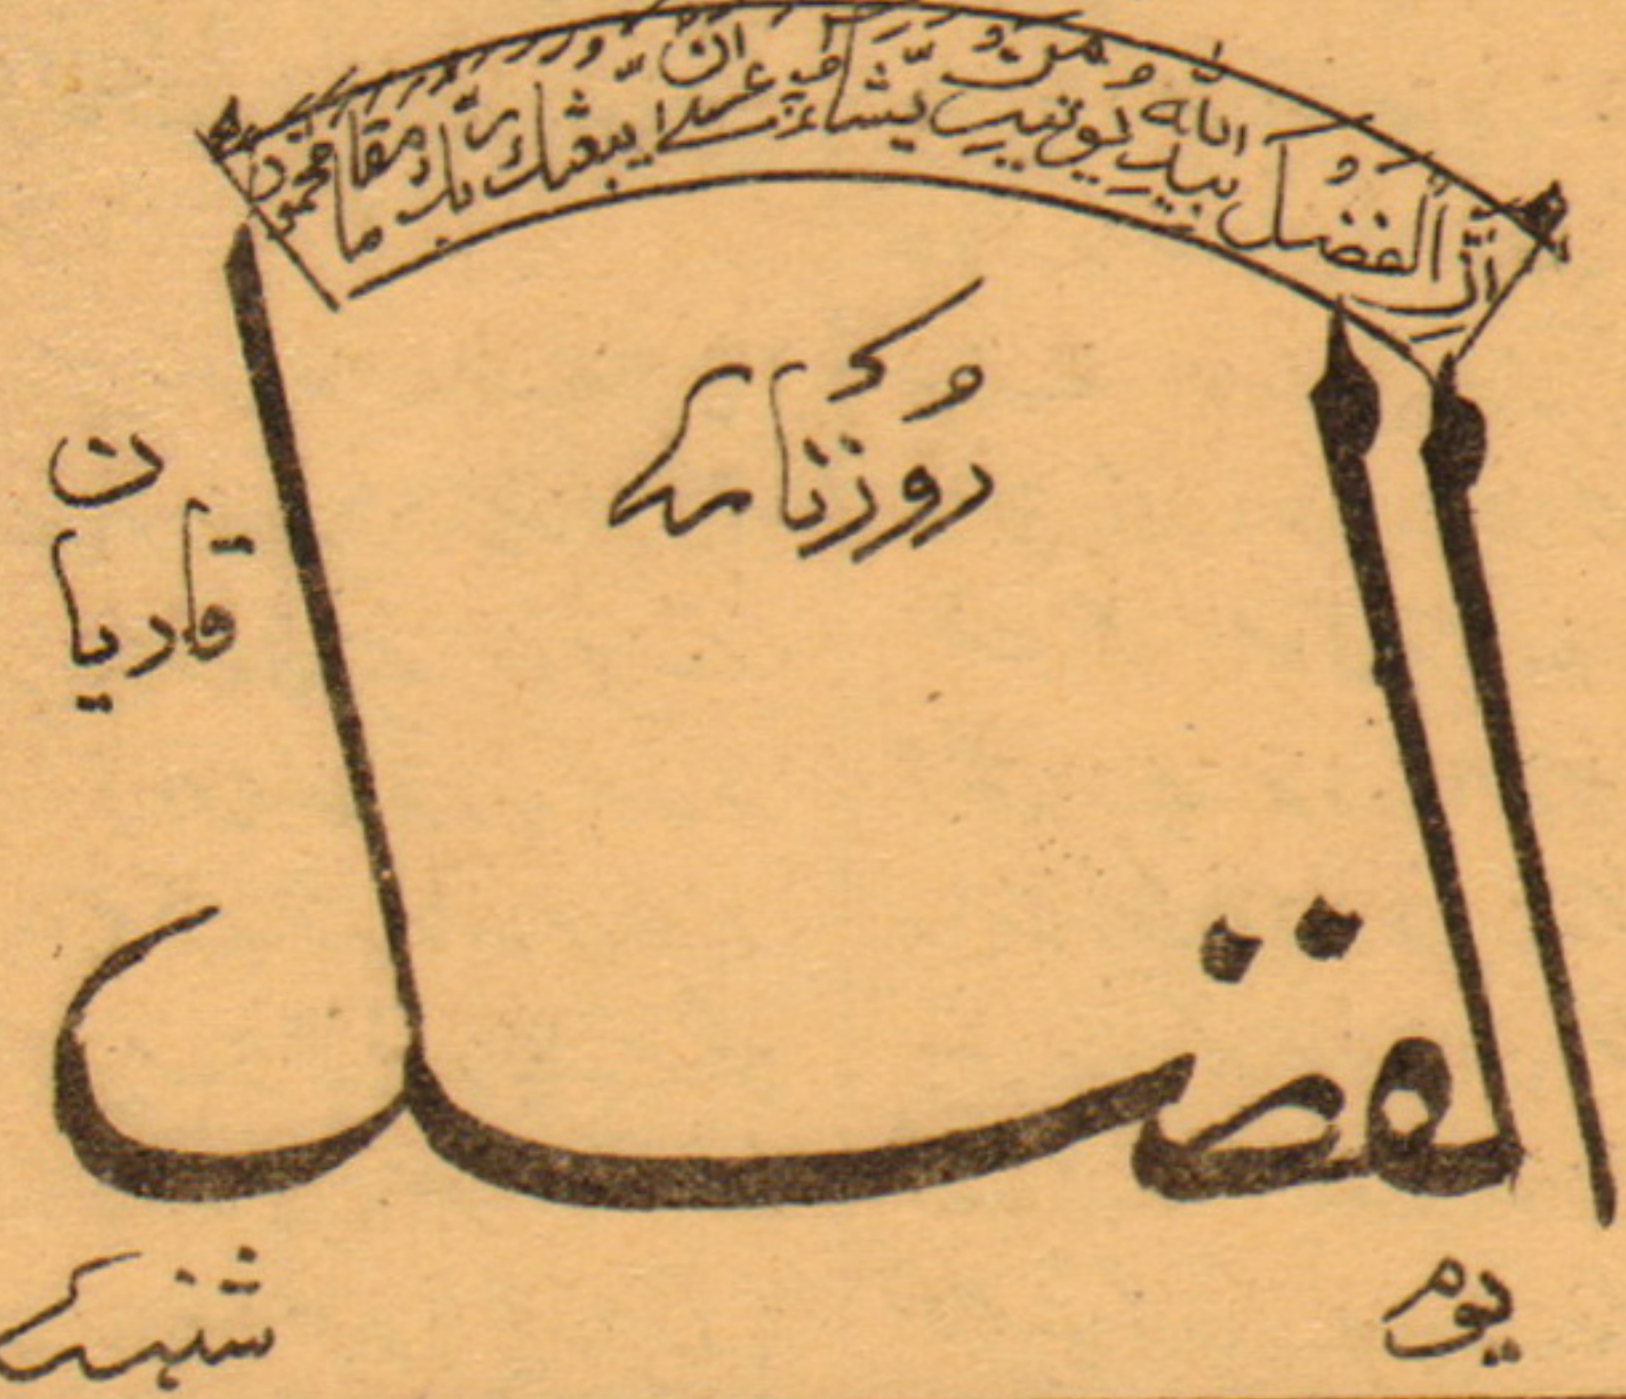 اِنَّ الفَضلَ بِیَدِ اللہِ یُؤتِیہِ مَن یَّشَآءُ عَسٰی اَن یَّبعَثَکَ رَبُّکَ مَقَامًا مَّحمُودًا
روزنامہ
قادیان
الفضل
یوم شنبہ